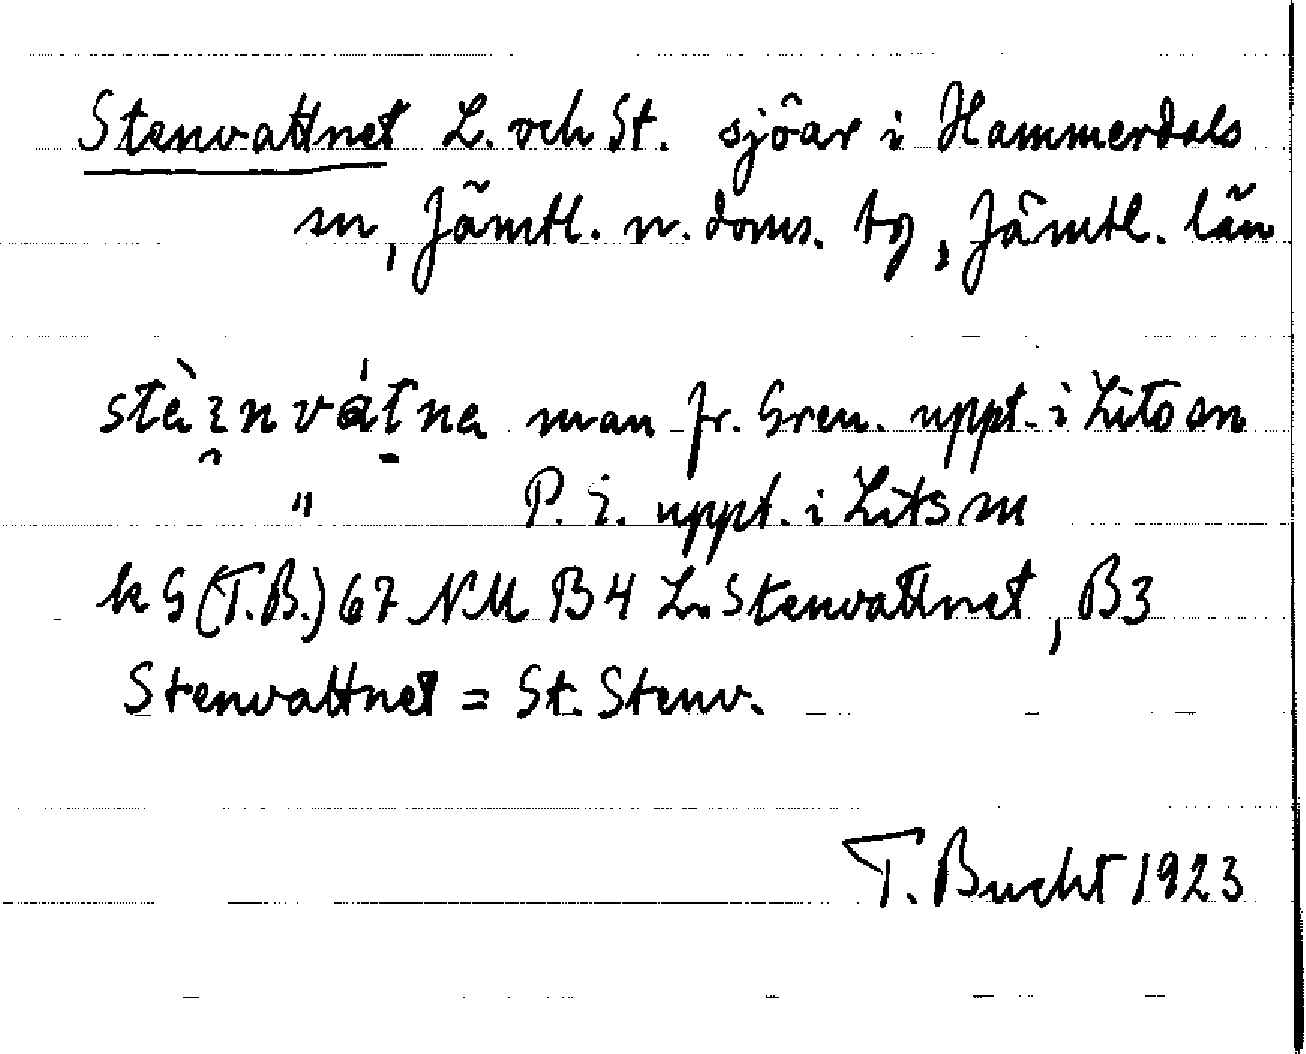 Stenvattnet L. och St. sjöar i Hammerdals
sn, Jämtl. n. doms. tg, Jämtl. län
man fr. Gren. uppt. i Lits sn
" P. E. uppt. i Lits sn
k G (T.B.) 67 NM B4 L. Stenvattnet, B3
Stenvattnet = St. Stenv.
T. Bucht 1923